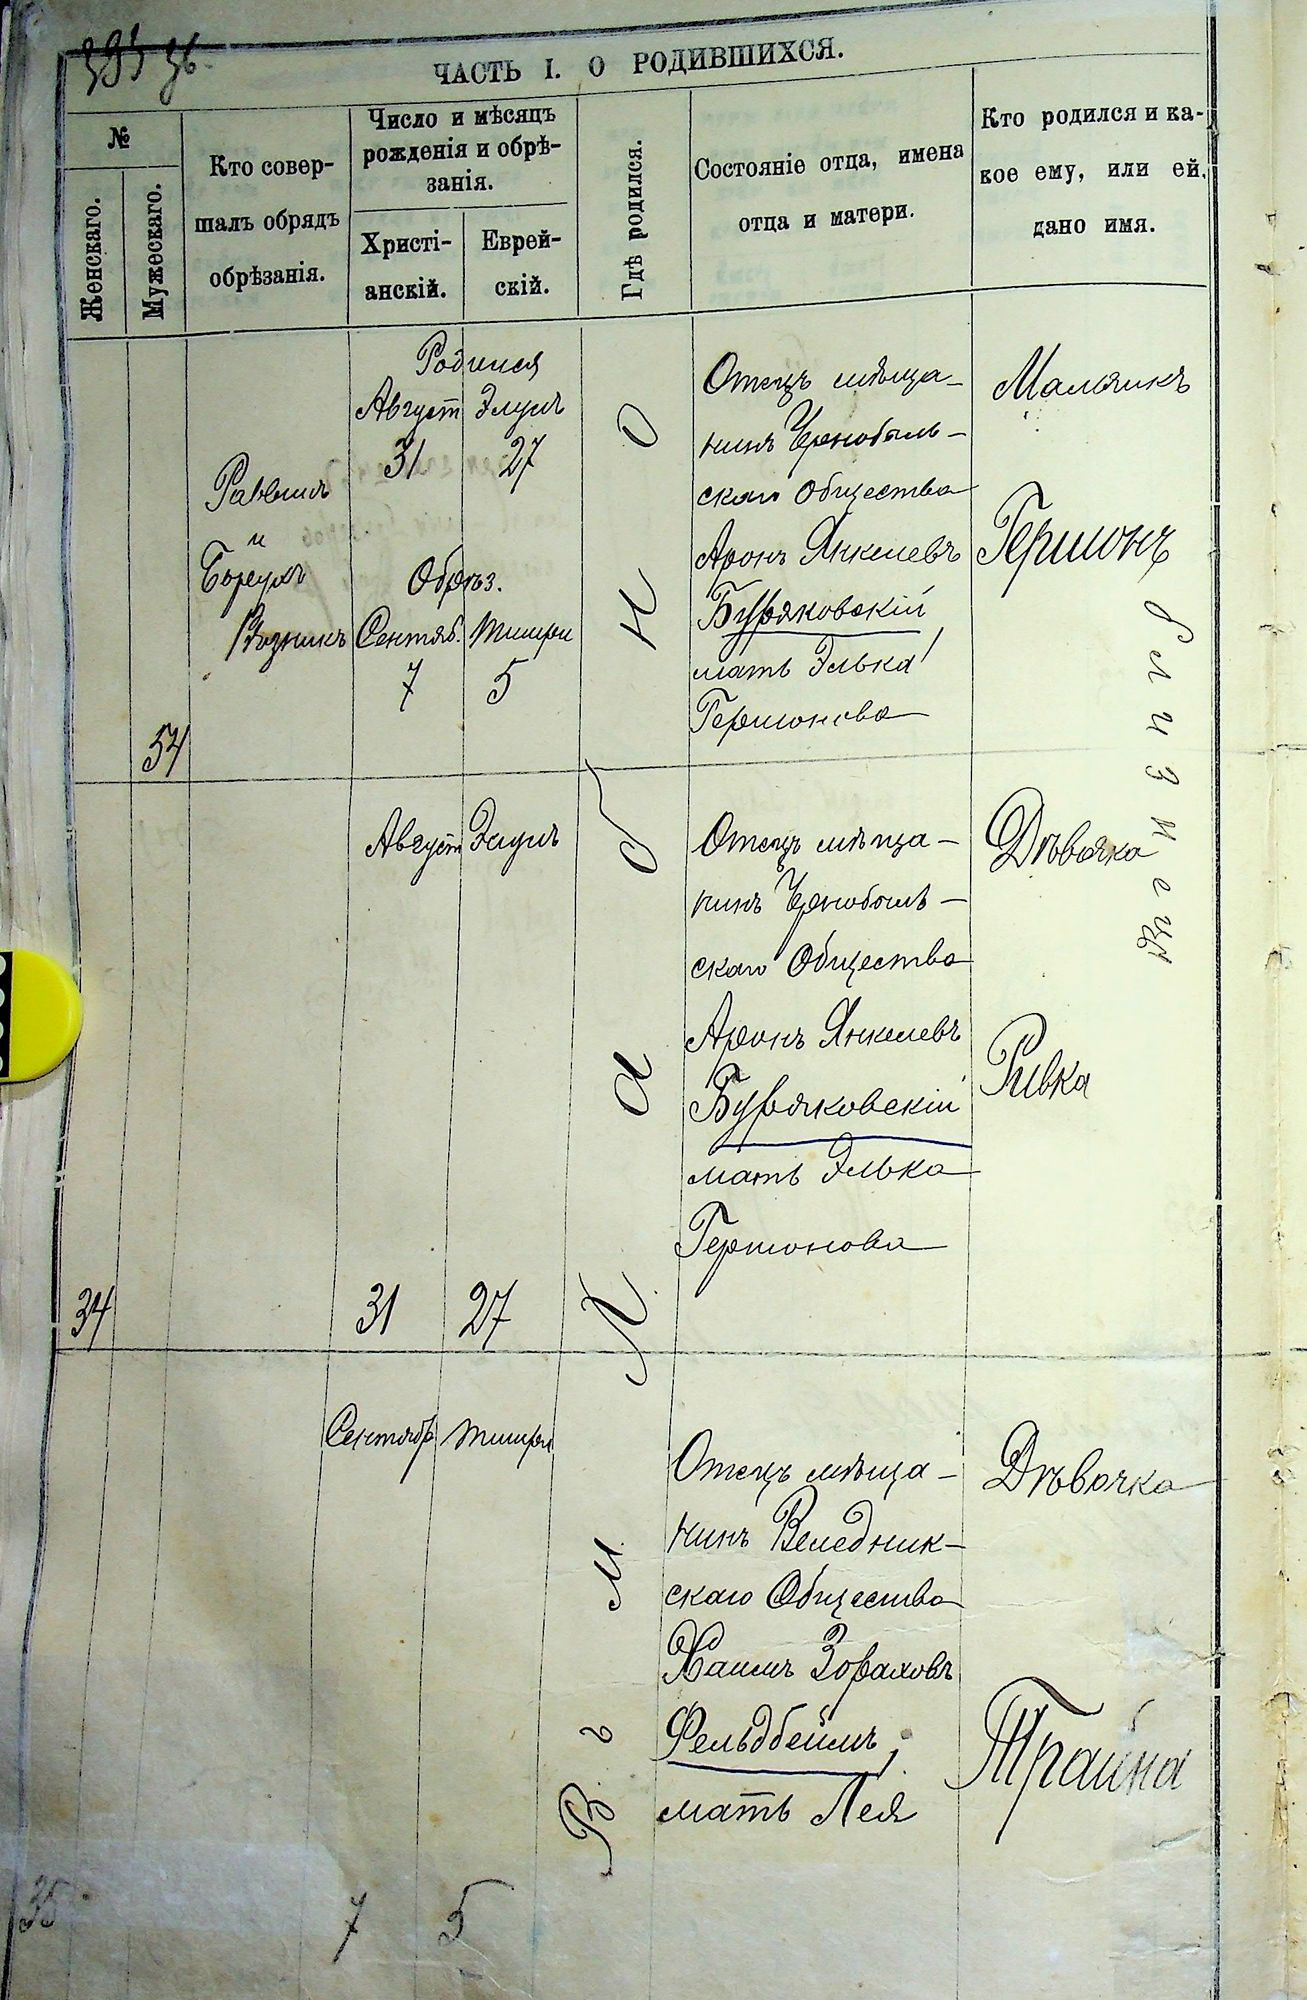 ЧАСТЬ I. О РОДИВШИХСЯ.
№
Женскаго.
Мужескаго.
Кто совер-
шалъ обрядъ
обрѣзанія.
Число и мѣсяцъ
рожденія и обрѣ-
занія.
Христі-
анскій.
Еврей-
скій.
Гдѣ родился.
Состояніе отца, имена
отца и матери.
Кто родился и ка-
кое ему, или ей,
дано имя.
54
Раввинъ
и
Борухъ
Резникъ
Родился
Август Элулъ
31 27
Обрѣз.
Сентяб. Тишри
7 5
Отецъ мѣща-
нинъ Чернобыль-
скаго Общества
Аронъ Янкелевъ
Буряковскій
мать Элька
Гершонова
Мальчикъ
Гершонъ
близнецы
34
Август Элулъ
31 27
Отецъ мѣща-
нинъ Чернобыль-
скаго Общества
Аронъ Янкелевъ
Буряковскій
мать Элька
Гершонова
Дѣвочка
Ривка
35
Сентябр Тишри
7 5
Отецъ мѣща-
нинъ Веледник-
скаго Общества
Хаимъ Зораховъ
Фельдбеймъ,
мать Лея
Дѣвочка
Трайна